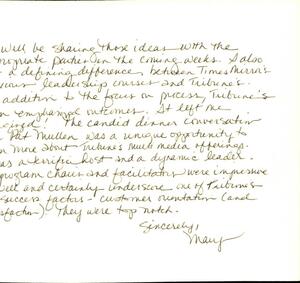 will be sharing those ideas with the
propriate parties in the coming weeks. I also
a defining difference between Times Mirror's
vious leadership courses and Tribune's.
addition to the focus on process, Tribune's
an emphasized outcomes. It left me
The candid dinner conversation
Pat Mullen was a unique opportunity to
rn more about Tribune's multi media offerings.
was a terrific host and a dynamic leader.
program chairs and facilitators were impressive
well and certainly underscore one of Tribune's
success factors - customer orientation (and
sfaction) They were top notch.
Sincerely,
Mary